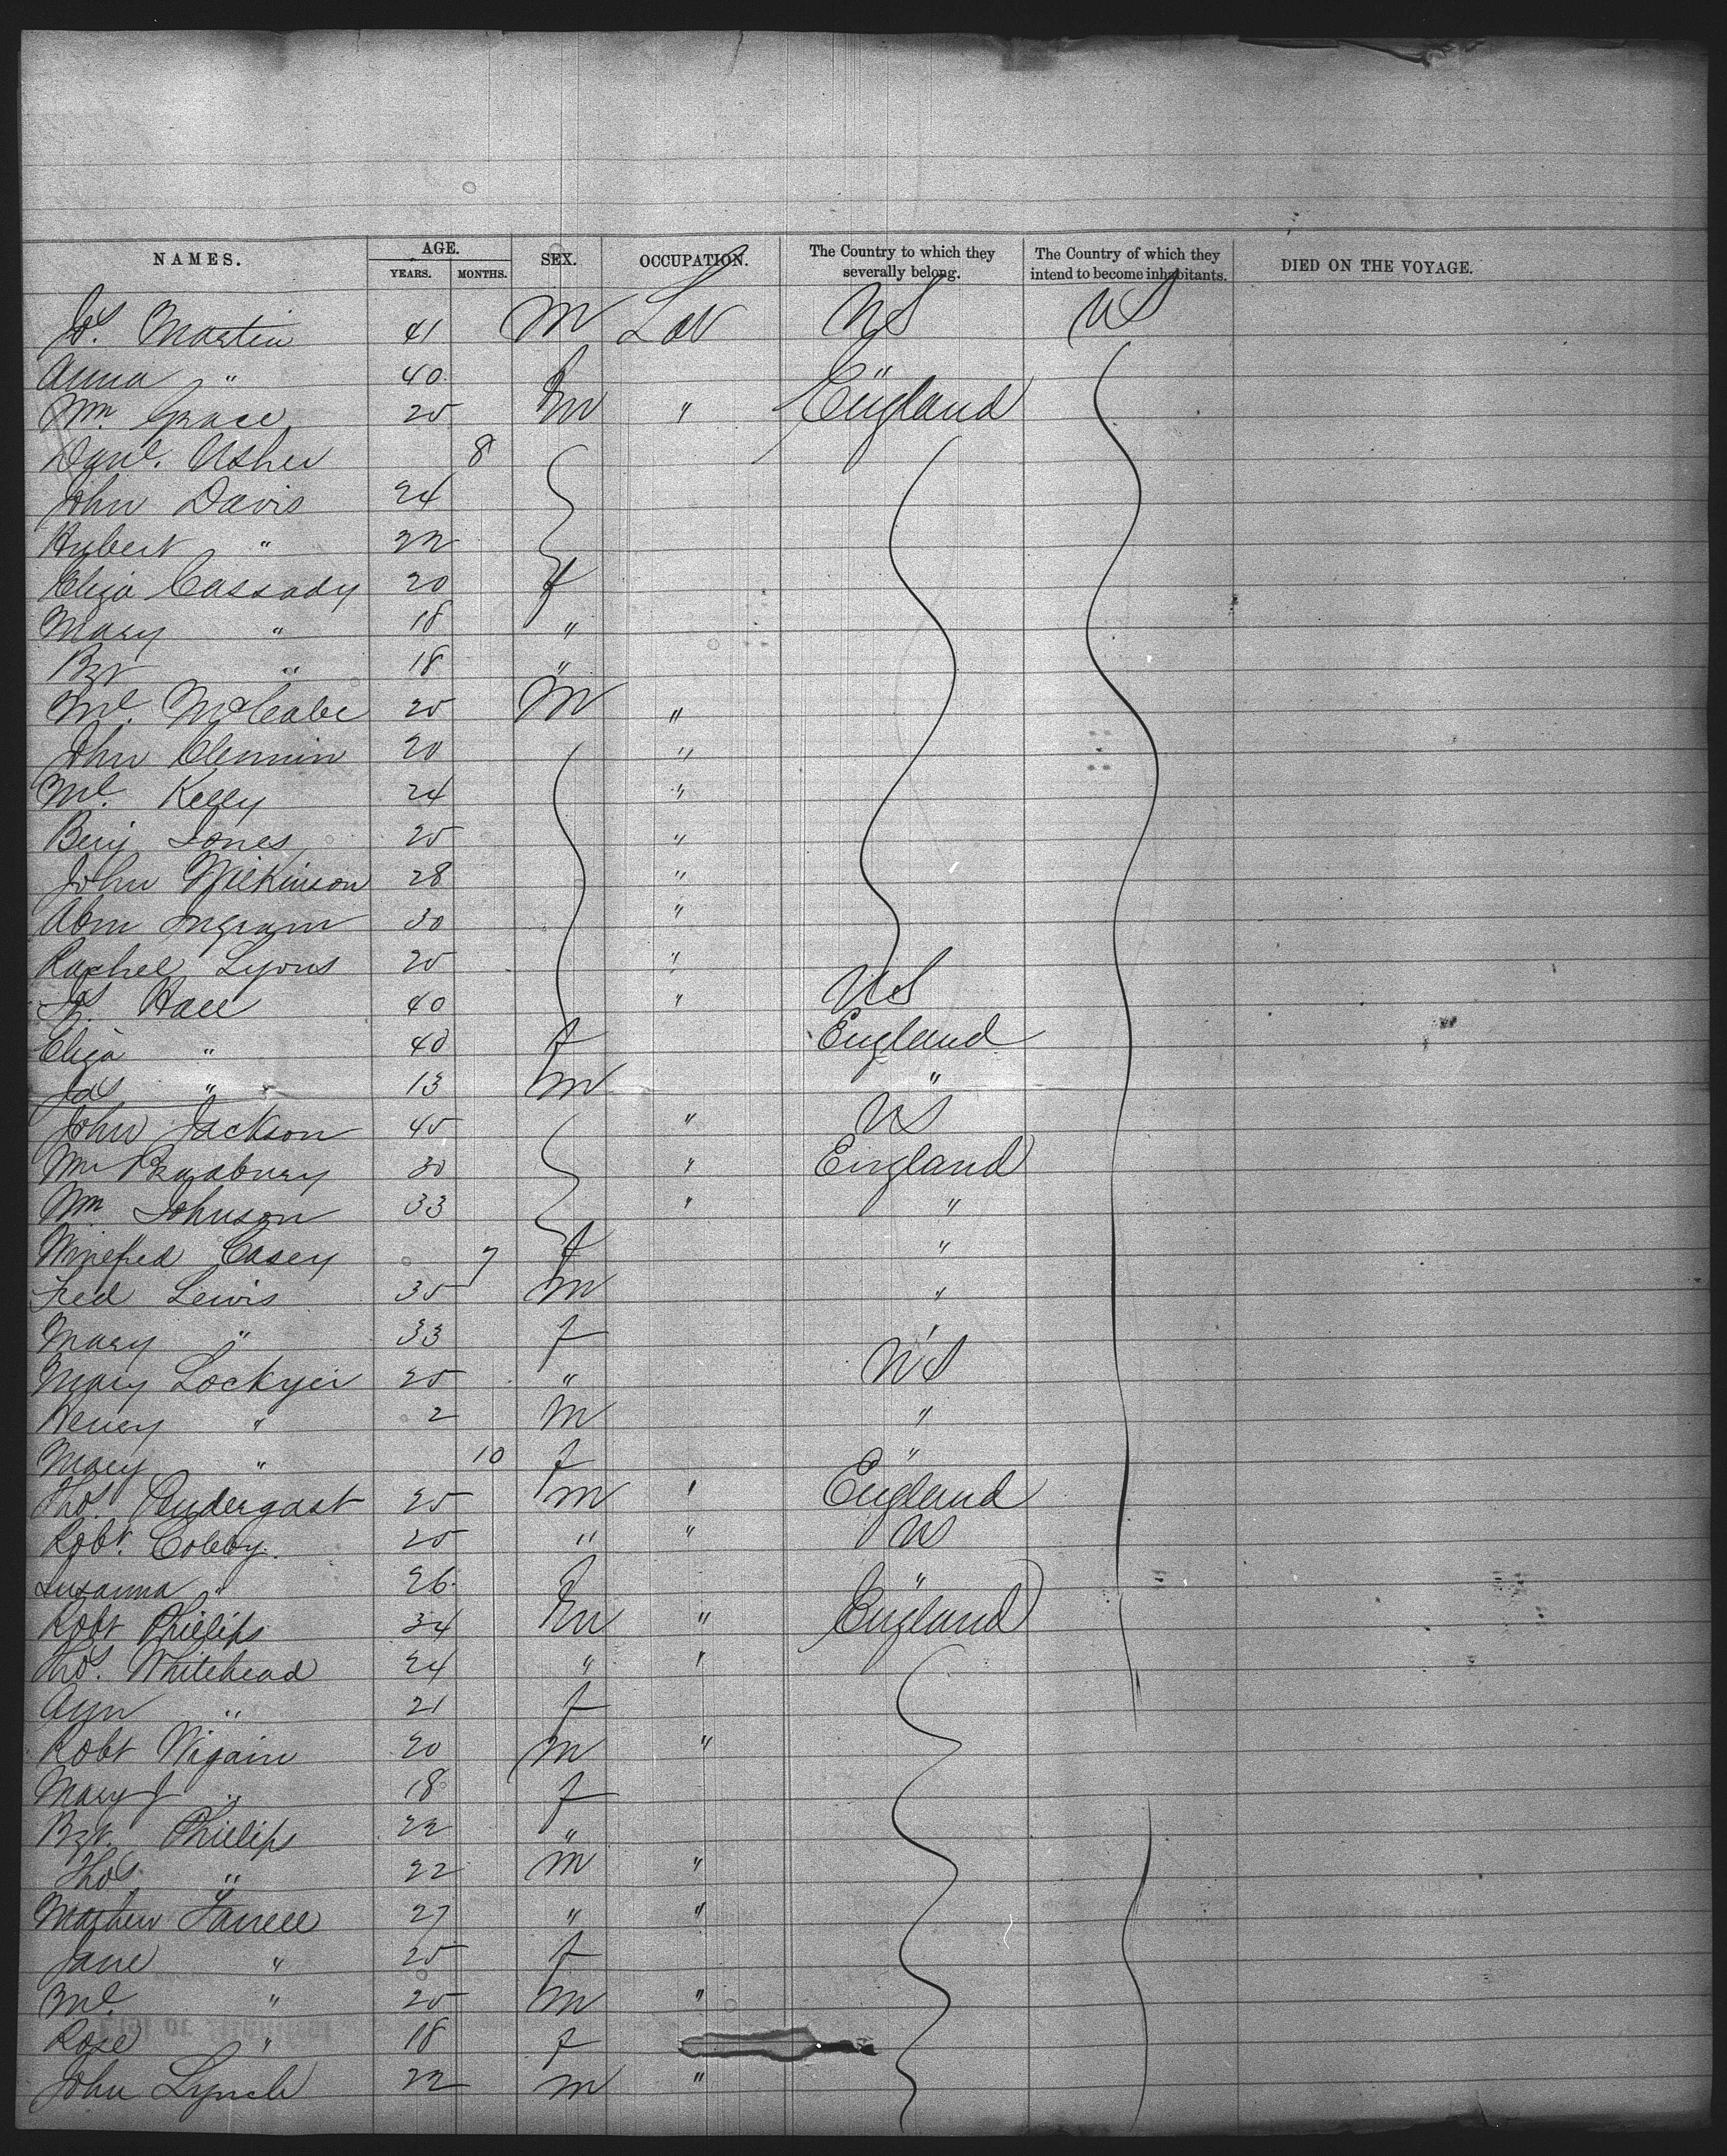 NAMES. AGE. YEARS. MONTHS. SEX. OCCUPATION. The Country to which they severally belong. The Country of which they intend to become inhabitants. DIED ON THE VOYAGE.
Jos. Martin 41 M Lab US US
Anna " 40 f "
Wm. Grace 25 m " England
Danl. Usher 8
John Davis 24
Hubert " 22
Eliza Cassady 20 f
Mary " 18 "
Bgt " 18 "
Ml. McCabe 25 M "
John Clennin 20 "
Ml. Kelly 24 "
Benj Jones 25 "
John Wilkinson 28 "
Abm Ingram 30 "
Rachel Lyons 25 "
Js. Hall 40 " US
Eliza " 40 f England
Jas " 13 m "
John Jackson 45 " US
Wm Bradbury 30 " England
Wm Johnson 33 " "
Winefred Casey 7 f "
Fred Lewis 35 m "
Mary " 33 f "
Mary Lockyer 25 " US
Henry " 2 m "
Mary " 10 f "
Thos. Pendergast 25 m " England
Robt. Cobby. 25 " " US
Susanna " 26 f "
Robt Phillips 34 m " England
Thos. Whitehead 24 " "
Ann " 21 f
Robt Wigain 20 m "
Mary J " 18 f
Bgt. Phillips 22 "
Thos " 22 m "
Mathew Farrell 27 " "
Jane " 25 f
Ml. " 25 m "
Rose " 18 f
John Lynch 22 m "